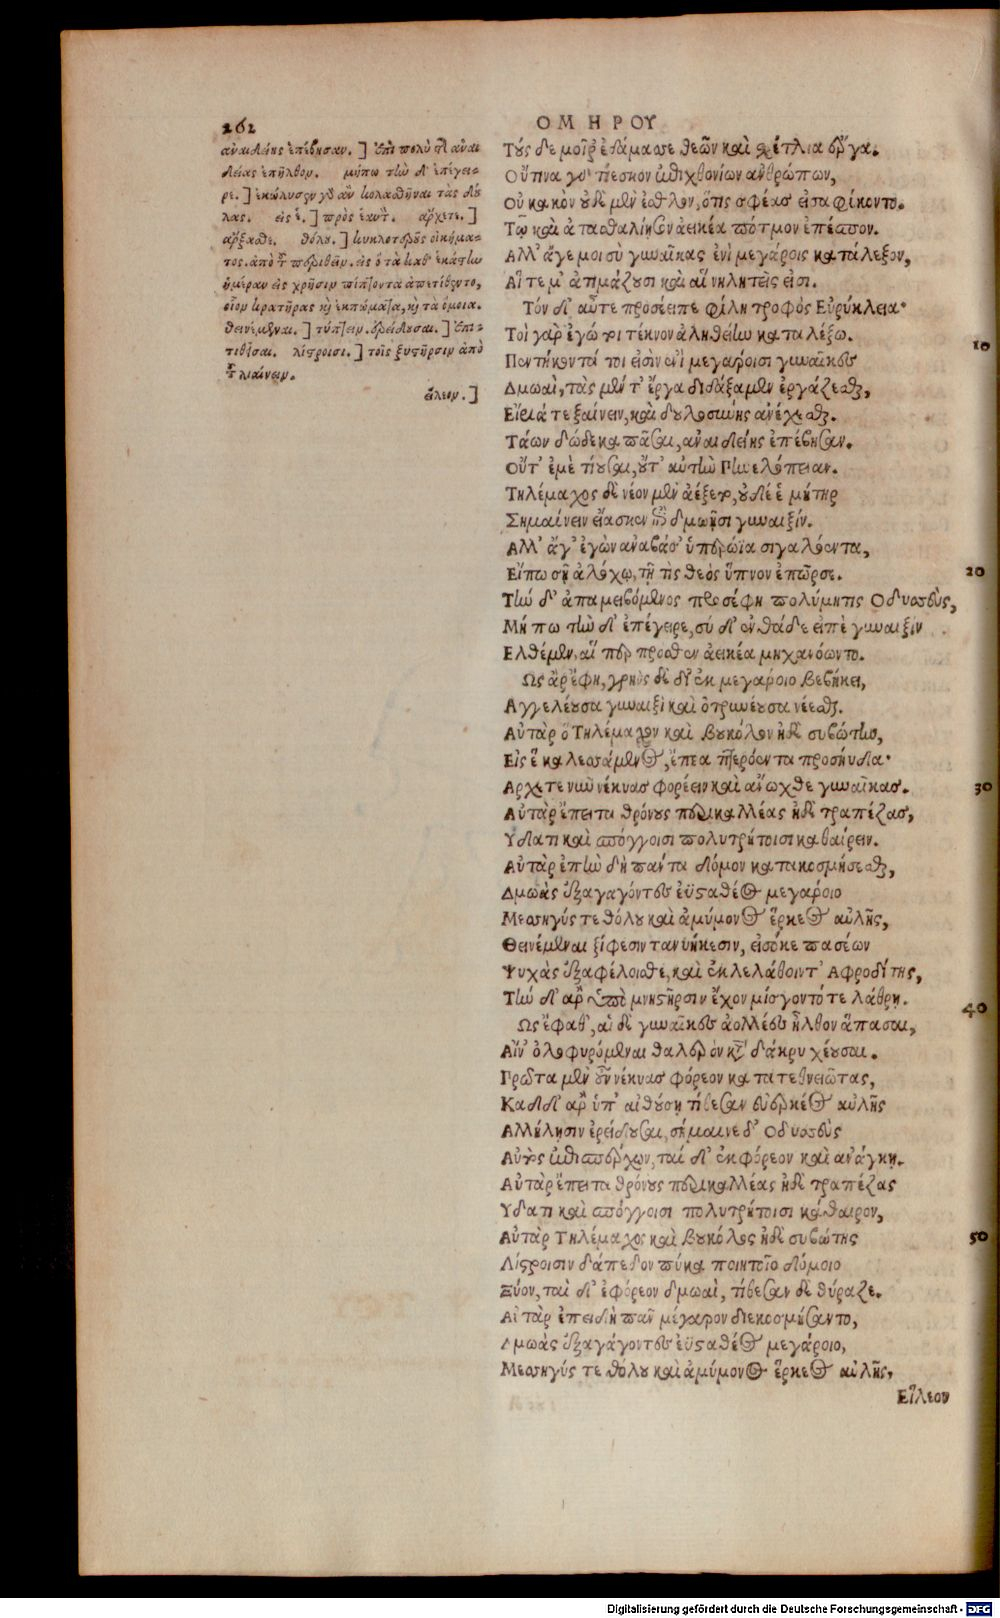 262
ΟΜΗΡΟΥ
ἀναιδείης ἐπέβησαν.] ἐπὶ πολὺ τῆς ἀναι
δείας ἐπῆλθον. μήπω τὴν δ' ἐπέγει-
ρε.] ἐκώλυσεν γὸ ἂν κολασθῆναι τὰς δού
λας. εἰς ἓ.] πρὸς ἑαυτ. ἄρχετε.]
ἄρξασθε. θόλου.] κυκλοτεροῦς οἰκήμα-
τος. ἀπὸ τ περιθεῖν. εἰς ὃ τὰ καθ' ἑκάστην
ἡμέραν εἰς χρῆσιν πίπτοντα ἀπετίθεντο,
οἷον κρατῆρας καὶ ἐκπώματα, καὶ τὰ ὅμοια.
θεινέμεναι.] τύπτειν. ἐρείδουσαι.] ἐπι-
τιθεῖσαι. λίστροισι.] τοῖς ξυστῆρσιν ἀπὸ
τ λιαίνειν.
εἴλεον.]
Τούς δε μοῖρ' ἐδάμασσε θεῶν καὶ σχέτλια ἔργα.
Οὔτινα γὸ τίεσκον ἐπιχθονίων ἀνθρώπων,
Οὐ κακὸν οὐδὲ μὲν ἐσθλὸν, ὅτις σφέας εἰσαφίκοντο.
Τῷ καὶ ἀτασθαλίῃσιν ἀεικέα πότμον ἐπέσπον.
Αλλ' ἄγε μοι σὺ γυναῖκας ἐνὶ μεγάροις κατάλεξον,
Αἵ τε μ' ἀτιμάζουσι καὶ αἳ νηλητεῖς εἰσι.
Τὸν δ' αὖτε προσέειπε φίλη τροφὸς Εὐρύκλεια·
Τοὶ γὰρ ἐγώ τοι τέκνον ἀληθείην καταλέξω.
10
Πεντήκοντά τοι εἰσὶν ἐνὶ μεγάροισι γυναῖκες
Δμωαὶ, τὰς μέν τ' ἔργα διδάξαμεν ἐργάζεσθαι,
Εἴριά τε ξαίνειν, καὶ δουλοσύνης ἀνέχεσθαι.
Τάων δώδεκα πᾶσαι, ἀναιδείης ἐπέβησαν.
Οὔτ' ἐμὲ τίουσαι, οὔτ' αὐτὴν Πηνελόπειαν.
Τηλέμαχος δὲ νέον μὲν ἀέξετο, οὐδέ ἑ μήτηρ
Σημαίνειν εἴασκεν ἐπὶ δμωῇσι γυναιξίν.
Αλλ' ἄγ' ἐγὼν ἀναβᾶσ' ὑπερώϊα σιγαλόεντα,
Εἴπω σῇ ἀλόχῳ, τῇ τὶς θεὸς ὕπνον ἐπῶρσε.
20
Τὴν δ' ἀπαμειβόμενος προσέφη πολύμητις Οδυσσεὺς,
Μή πω τὴν δ' ἐπέγειρε, σὺ δ' ἐνθάδε εἰπὲ γυναιξὶν
Ελθέμεν, αἵ περ πρόσθεν ἀεικέα μηχανόωντο.
Ως ἄρ ἔφη, γρηὺς δὲ δι' ἐκ μεγάροιο βεβήκει,
Αγγελέουσα γυναιξὶ καὶ ὀτρυνέουσα νέεσθαι.
Αὐτὰρ ὁ Τηλέμαχον καὶ βουκόλον ἠδὲ συβώτην,
Εἰς ἓ καλεσσάμενος, ἔπεα πτερόεντα προσηύδα·
Αρχετε νῦν νέκυας φορέειν καὶ ἄνωχθε γυναῖκας.
30
Αὐτὰρ ἔπειτα θρόνους περικαλλέας ἠδὲ τραπέζας,
Υδατι καὶ σπόγγοισι πολυτρήτοισι καθαίρειν.
Αὐτὰρ ἐπὴν δὴ πάντα δόμον κατακοσμήσεσθαι,
Δμωὰς ἐξαγαγόντες ἐϋσταθέος μεγάροιο
Μεσσηγύς τε θόλου καὶ ἀμύμονος ἕρκεος αὐλῆς,
Θεινέμεναι ξίφεσιν τανυήκεσιν, εἰσόκε πασέων
Ψυχὰς ἐξαφέλοισθε, καὶ ἐκλελάθοιντ' Αφροδίτης,
Τὴν δ' ἄρ ὑπὸ μνηστῆρσιν ἔχον μίσγοντό τε λάθρη.
40
Ως ἔφαθ', αἱ δὲ γυναῖκες ἀολλέες ἦλθον ἅπασαι,
Αἴν' ὀλοφυρόμεναι θαλερὸν κατὰ δάκρυ χέουσαι.
Πρῶτα μὲν οὖν νέκυας φόρεον κατατεθνειῶτας,
Καδδ' ἄρ ὑπ' αἰθούσῃ τίθεσαν εὐερκέος αὐλῆς
Αλλήλῃσιν ἐρείδουσαι, σήμαινε δ' Οδυσσεὺς
Αὐτὸς ἐπισπέρχων, ταὶ δ' ἐκφόρεον καὶ ἀνάγκῃ.
Αὐτὰρ ἔπειτα θρόνους περικαλλέας ἠδὲ τραπέζας
Υδατι καὶ σπόγγοισι πολυτρήτοισι κάθαιρον,
Αὐτὰρ Τηλέμαχος καὶ βουκόλος ἠδὲ συβώτης
50
Λίστροισιν δάπεδον πύκα ποιητοῖο δόμοιο
Ξύον, ταὶ δ' ἐφόρεον δμωαὶ, τίθεσαν δὲ θύραζε.
Αὐτὰρ ἐπειδὴ πᾶν μέγαρον διεκοσμήσαντο,
Δμωὰς ἐξαγάγοντες ἐϋσταθέος μεγάροιο,
Μεσσηγύς τε θόλου καὶ ἀμύμονος ἕρκεος αὐλῆς,
Εἴλεον
Digitalisierung gefördert durch die Deutsche Forschungsgemeinschaft - DFG